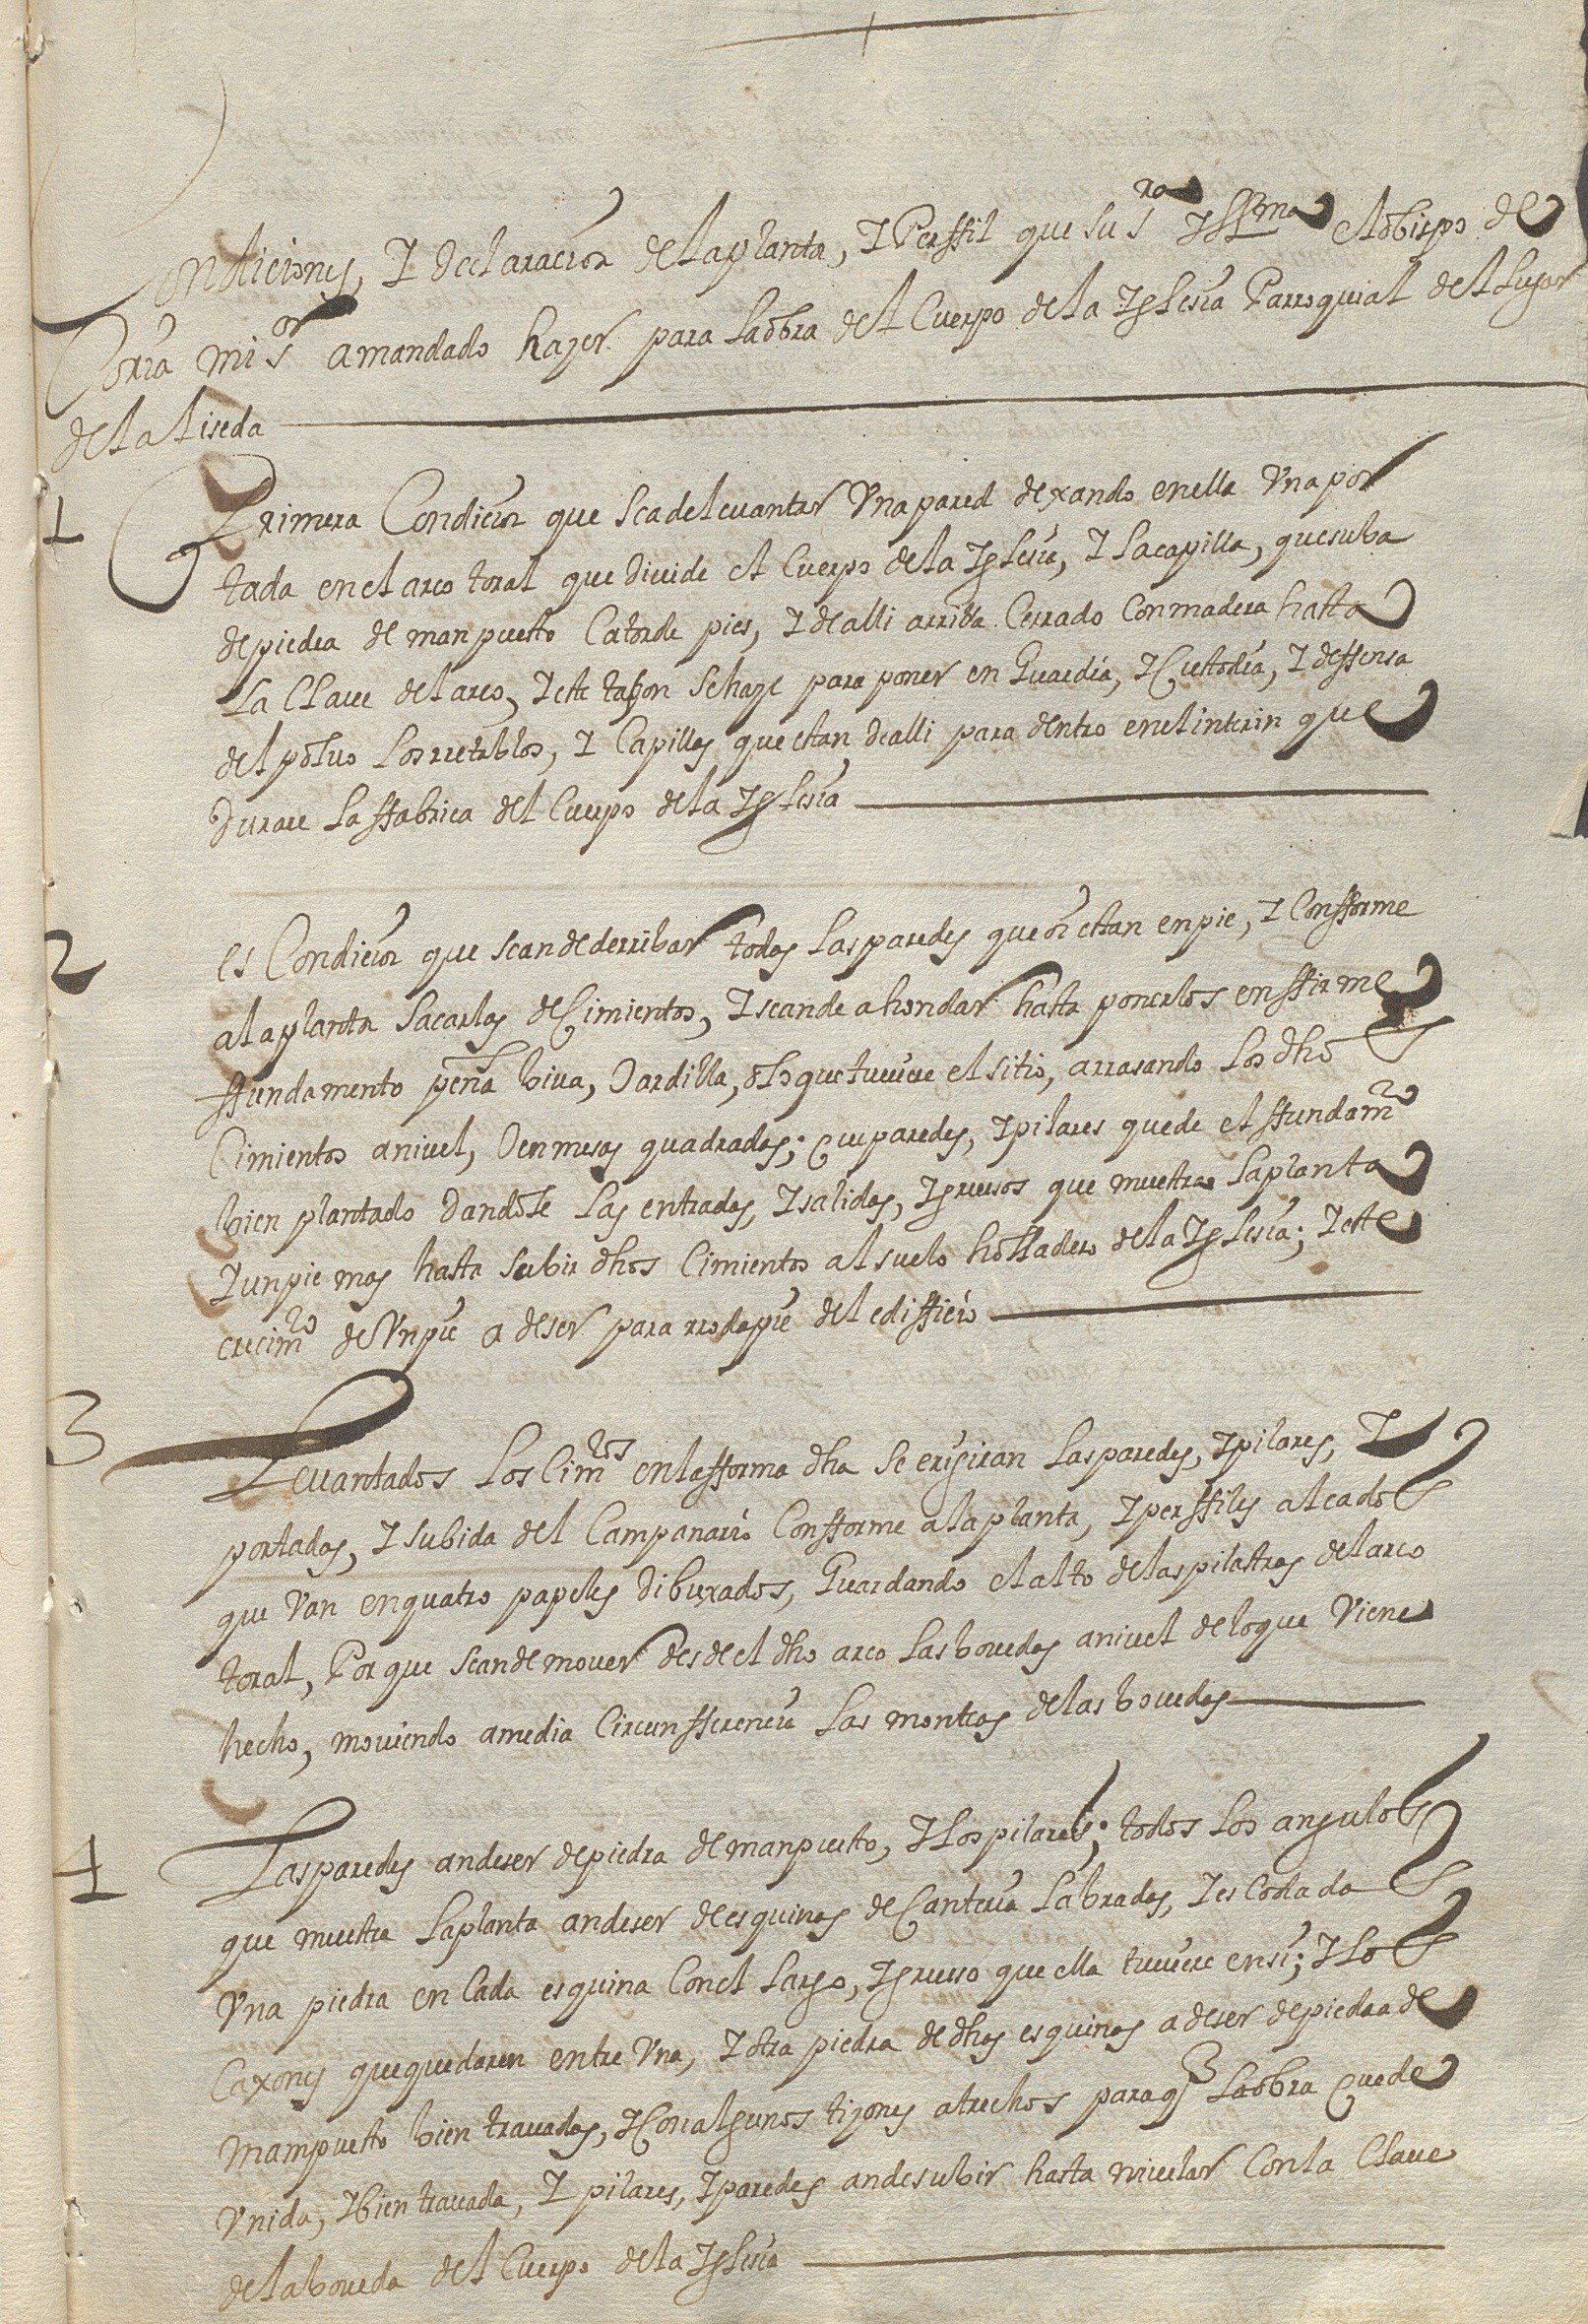 Condiciones, I Declaracion de la planta, I Perffil que su sra Illma el obispo de
Coria mi sor a mandado hazer para la obra del Cuerpo de la Iglesia Parroquial del lugar
de la liseda
1 Primera Condicion que se a de levantar Vna pared dexando en ella Vna por
tada en el arco toral que diuide el Cuerpo de la Iglesia, I la capilla, que suba
de piedra de manpuesto Catorde pies, I de alli arriba Cerrado con madera hasta
la Claue del arco, I este tajon se haze para poner en Guardia, I Custodia, I deffensa
del poluo los rretablos, I Capillas que estan de alli para dentro en el interin que
Durare la ffabrica del Cuerpo de la Iglesia
2 es Condicion que se an de derribar todas las paredes que oi estan en pie, I Confforme
a la planta sacarlas de Cimientos, I se an de ahondar hasta ponerlos en ffirme
ffundamento peña biua, O ardilla, o lo que tuuiere el sitio, arrasando los dhos
Cimientos a niuel, O en mesas quadradas; que paredes, I pilares quede el ffundamto
bien plantado Dandole las entradas, I salidas, I gruesos que muestra la planta
I un pie mas hasta subir dhos Cimientos al suelo holladero de la Iglesia; I este
crecimto de Vn pie a de ser para rrodapie del edifficio
3 Levantados los Cimtos en la fforma dha se erigiran las paredes, I pilares, I
portadas, I subida del Campanario Confforme a la planta, I perffiles alcados
que Van en quatro papeles Dibuxados, Guardando el alto de las pilastras del arco
toral, Por que se an de mouer desde el dho arco las bouedas a niuel de lo que Viene
hecho, mouiendo a media Circunfferencia las monteas de las bouedas
4 Las paredes an de ser de piedra de manpuesto, I los pilares; todos los angulos
que muestra la planta an de ser de esquinas de Canteria labradas, I escodada
Vna piedra en Cada esquina Con el largo, I grueso que ella tuuiere en si; I los
Caxones que quedaren entre Vna, I otra piedra de dhas esquinas a de ser de piedra de
Mampuesto bien trauadas, I Con algunos tizones a trechos para q la obra quede
Vnida, I bien trauada, I pilares, I paredes an de subir hasta niuelar Con la Claue
de la boueda del Cuerpo de la Iglesia